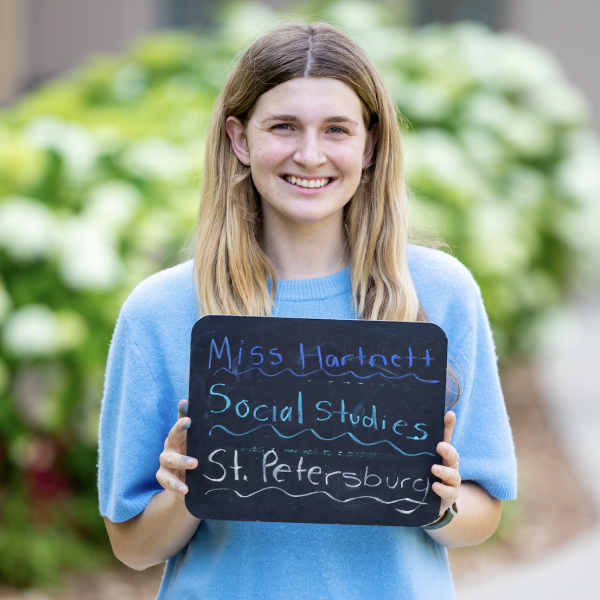 Miss Hartnett
Social Studies
St. Petersburg